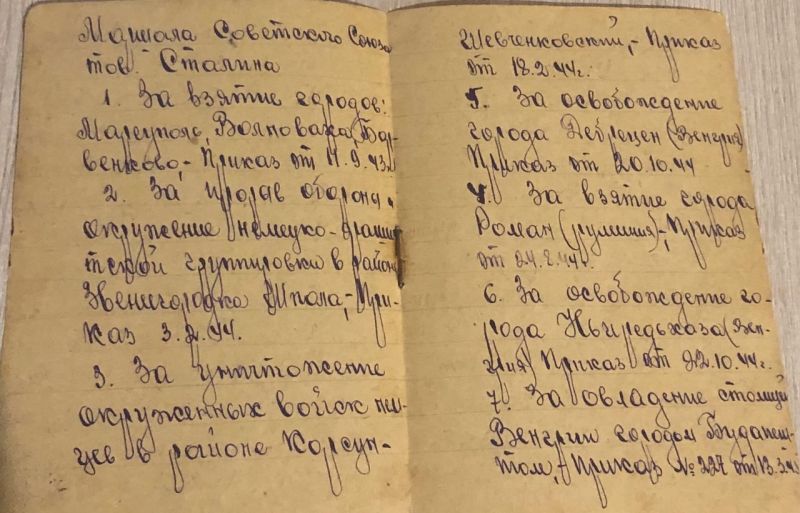 Маршала Советского Союза
тов. Сталина
1. За взятие городов:
Мариуполь, Волноваха, Бар-
венково, - Приказ от 11.9.43г.
2. За прорыв обороны,
окружение немецко-фашис
тской группировки в районе
Звенигородка Шпола, - При-
каз 3.2.44.
3. За уничтожение
окруженных войск нем-
цев в районе Корсун-
Шевченковский, - Приказ
от 18.2.44г.
5. За освобождение
города Дебрецен (Венгрия)
Приказ от 20.10.44
4. За взятие города
Роман (румыния), - Приказ
от 24.8.44г.
6. За освобождение го-
рода Ньиредьхаза (Вен-
грия) Приказ от 22.10.44г.
7. За овладение столицей
Венгрии городом Будапеш-
том, - Приказ № 227 от 13.2.45